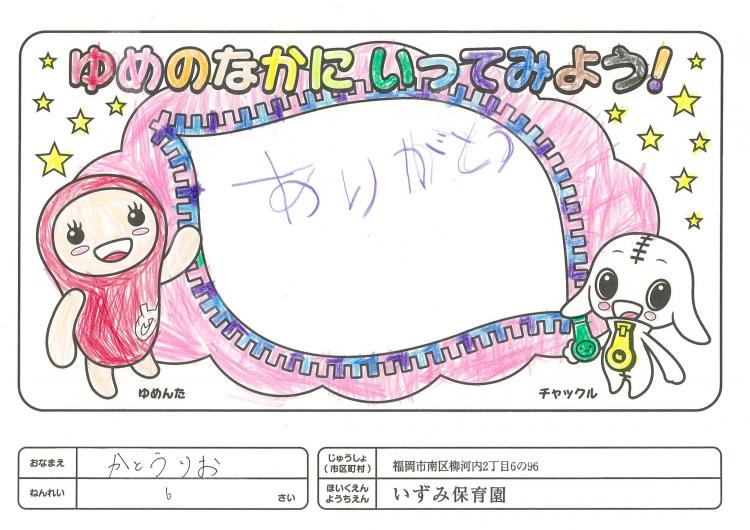 ゆめのなかに いってみよう!
ありがとう
ゆめんた
チャックル
おなまえ かとうりお
ねんれい 6 さい
じゅうしょ
(市区町村)
福岡市南区柳河内2丁目6の96
ほいくえん
ようちえん
いずみ保育園